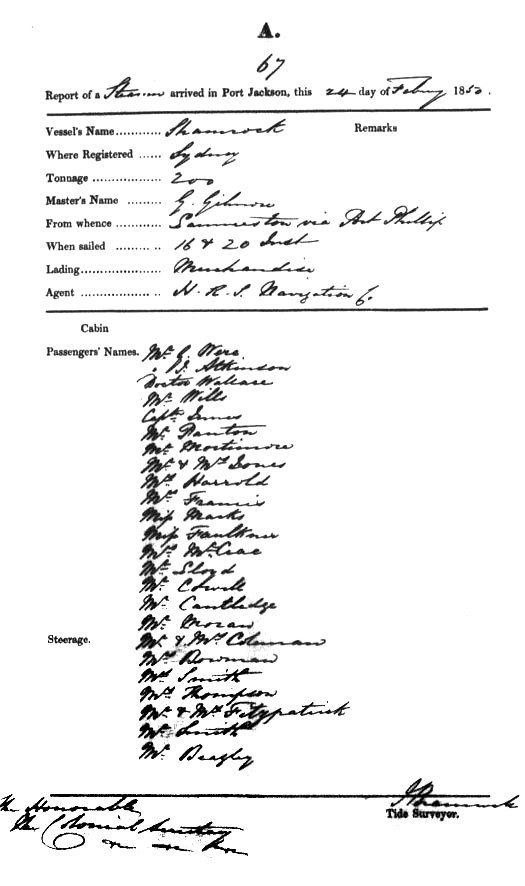 A.
67
Report of a Steamer arrived in Port Jackson, this 24 day of Febry 1850.
Vessel's Name............ Shamrock Remarks
Where Registered ...... Sydney
Tonnage .................. 200
Master's Name ......... G. Gilmore
From whence ............ Launceston via Port Phillip
When sailed ............ 16 & 20 Inst
Lading..................... Merchandise
Agent ..................... H. R. S. Navigation Co.
Cabin
Passengers' Names. Mr. C. Were
" J. Atkinson
Doctor Wallace
Mr. Wills
Captn. Innes
Mr. Panton
Mr. Mortimore
Mr. & Mrs. Jones
Mrs. Harrold
Mr. Francis
Miss Marks
Miss Faulkner
Mrs. McCrae
Mr. Lloyd
Mr. Cowell
Mr. Cantledge
Mr. Moran
Steerage. Mr. & Mrs. Coleman
Mrs. Bowman
Mrs. Smith
Mrs. Thompson
Mr. & Mrs. Fitzpatrick
Mr. Smith
Mr. Beagley
The Honorable
The Colonial Secretary
Tide Surveyor.